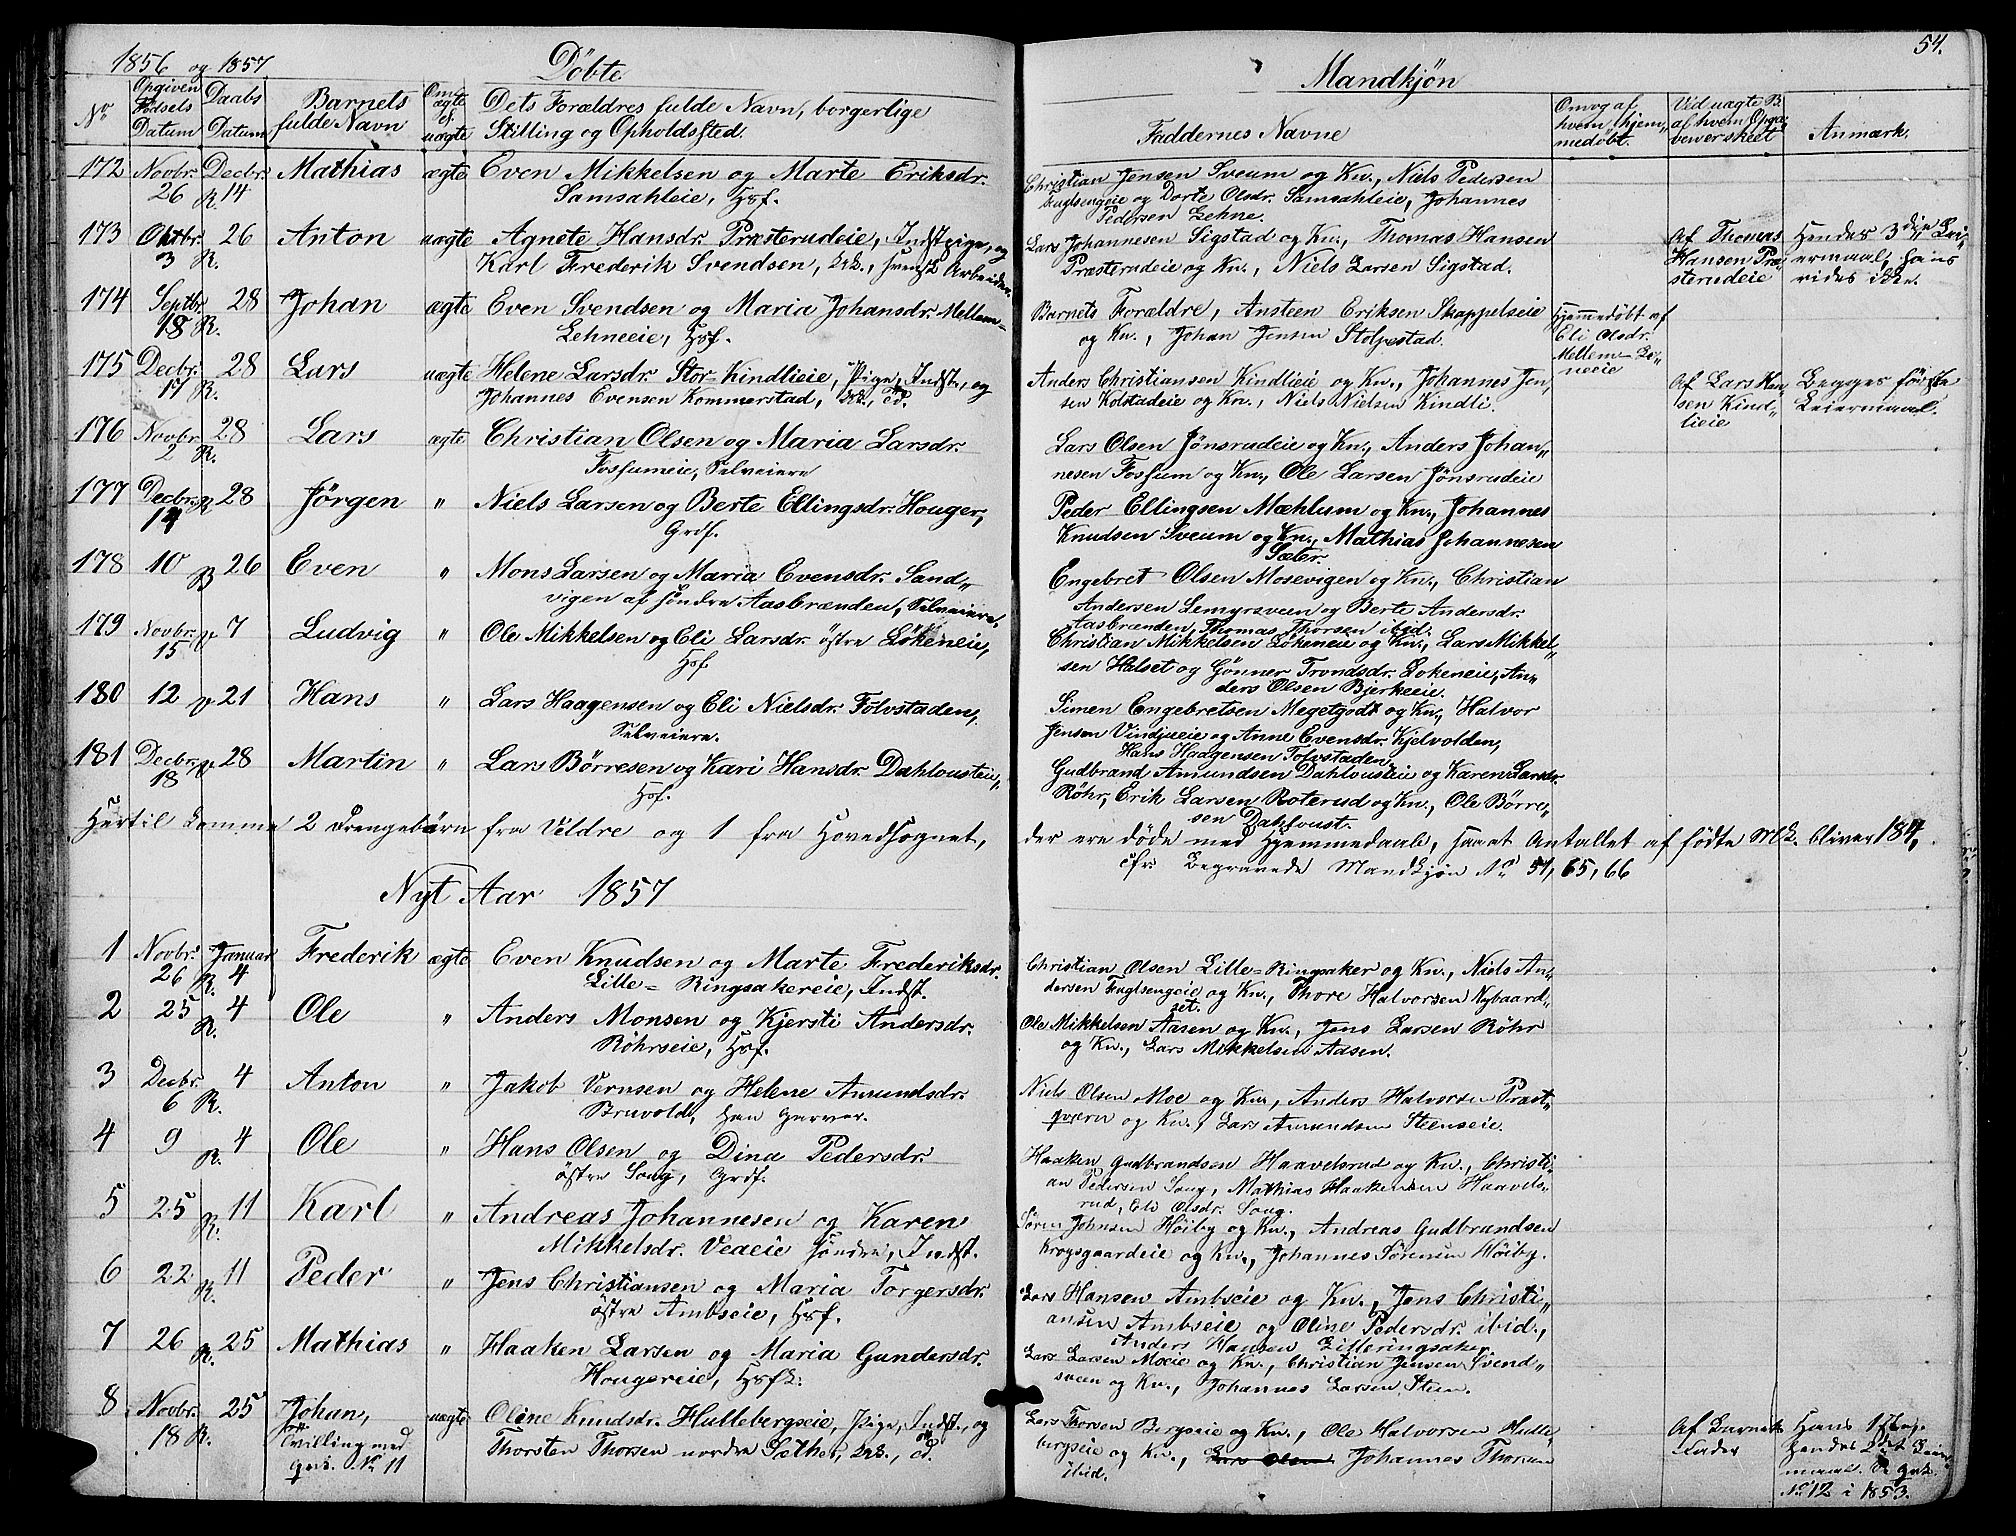 1856 og 1857
Döbte
Mandkjøn
54.
No
Opgiven
Födsels
Datum
Daabs
Datum
Barnets
fulde Navn
Om
ægte
el.
uægte
Dets Forældres fulde Navn, borgerlige
Stilling og Opholdssted.
Faddernes Navne
Om og af
hvem hjem„
medöbt.
Ved uægte B.
af hvem Opga„
ven er skeet
Anmærk.
172 Novbr. Decbr. Mathias ægte Even Mikkelsen og Marte Eriksdr.
26 R. 14 Samsahleie, Hsf.
Christian Jensen Sveum og Kn., Niels Pedersen
Fuglsengeie og Dorte Olsdr. Samsahleie, Johannes
Pedersen Lehne.
173 Oktbr. 26 Anton uægte Agnete Hansdr. Præsterudeie, Indst. pige, og
3 R. Karl Frederik Svendsen, svensk Arbeider.
Lars Johannesen Sigstad og Kn., Thomas Hansen
Præsterudeie og Kn., Niels Larsen Sigstad.
Af Thomas
Hansen Præ„
sterudeie
Hendes 3die Lei„
ermaal, hans
vides ikke.
174 Septbr. 28 Johan ægte Even Svendsen og Maria Johansdr. Mellem=
18 R. Lehneeie, Hsf.
Barnets Forældre, Ansteen Eriksen Skappelseie
og Kn., Johan Jensen Stolpestad.
Hjemmedöbt af
Eli Olsdr.
Mellem-Le„
neeie
175 Decbr. 28 Lars uægte Helene Larsdr. Stor-Kindlieie, Pige, Indst., og
17 R. Johannes Evensen Kommerstad,
Anders Christiansen Kindlieie og Kn., Johannes Jen„
sen Kolstadeie og Kn., Niels Nielsen Kindli.
Af Lars Han„
sen Kind„
lieie
Begges første
Leiermaal.
176 Novbr. 28 Lars ægte Christian Olsen og Maria Larsdr.
2 R. Fossumeie, Selveiere
Lars Olsen Jönsrudeie og Kn., Anders Johan„
nesen Fossum og Kn., Ole Larsen Jönsrudeie
177 Decbr. 28 Jörgen „ Niels Larsen og Berte Ellingsdr. Houger,
14 Grdf.
Peder Ellingsen Mæhlum og Kn., Johannes
Knudsen Sveum og Kn., Mathias Johannesen
Sæter.
178 10 26 Even „ Mons Larsen og Maria Evensdr. Sand„
vigen af søndre Aasbrænden, Selveiere.
Engebret Olsen Mosevigen og Kn., Christian
Andersen Lemyrsveen og Berte Andersdr.
Aasbrænden, Thomas Thorsen ibid.
179 Novbr. 7 Ludvig „ Ole Mikkelsen og Eli Larsdr. östre Lökeneie,
15 Hsf.
Christian Mikkelsen Lökeneie og Kn., Lars Mikkel„
sen Halset og Gönner Trondsdr. Lokeneie, An„
ders Olsen Bjerkeeie.
180 12 21 Hans „ Lars Haagensen og Eli Nielsdr. Folvstaden,
Selveiere.
Simen Engebretsen Megetgodt og Kn., Halvor
Jensen Vindjueie og Anne Evensdr. Kjelvolden,
Hans Haagensen Folvstaden.
181 Decbr. 28 Martin „ Lars Börresen og Kari Hansdr. Dahlousteie,
18 Hsf.
Gudbrand Amundsen Dahlousteie og Karen Larsdr.
Röhr, Erik Larsen Roterud og Kn., Ole Börre„
sen Dahloust.
Hertil komme 2 Drengebörn fra Veldre og 1 fra Hovedsognet,
der ere døde med Hjemmedaab, saaat Antallet af fødte Mk. bliver 184,
cfr. Begravede Mandkjøn No 51, 65, 66
Nyt Aar 1857
1 Novbr. Januar Frederik ægte Even Knudsen og Marte Frederiksdr.
26 R. 4 Lille=Ringsakereie, Indst.
Christian Olsen Lille=Ringsaker og Kn., Niels An„
dersen Fuglsengeie og Kn., Thore Halvorsen Nybaard„
set.
2 25 R. 4 Ole „ Anders Monsen og Kjersti Andersdr.
Röhrseie, Hsf.
Ole Mikkelsen Aasen og Kn., Jens Larsen Röhr
og Kn., Lars Mikkelsen Aasen.
3 Decbr. 4 Anton „ Jakob Vernsen og Helene Amundsdr.
6 R. Struvold, han Garver.
Niels Olsen Moe og Kn., Anders Halvorsen Præst„
qværn og Kn., Lars Amundsen Steenseie.
4 9 R. 4 Ole „ Hans Olsen og Dina Pedersdr.
östre Soug, Grdf.
Haaken Gudbrandsen Haavelsrud og Kn., Christi„
an Pedersen Soug, Mathias Haakensen Haavels„
rud, Eli Olsdr. Soug.
5 25 R. 11 Karl „ Andreas Johannesen og Karen
Mikkelsdr. Veaeie søndre, Indst.
Sören Johnsen Höiby og Kn., Andreas Gudbrandsen
Krogsgaardeie og Kn., Johannes Sørensen Höiby.
6 22 R. 11 Peder „ Jens Christiansen og Maria Torgersdr.
östre Ambseie, Hsf.
Lars Hansen Ambseie og Kn., Jens Christi„
ansen Ambseie og Oline Pedersdr. ibid.,
Anders Hansen Lilleringsaker.
7 26 R. 25 Mathias „ Haaken Larsen og Maria Gundersdr.
Hougereie, Hsfk.
Lars Larsen Moeie og Kn., Christian Jensen Svend„
sveen og Kn., Johannes Larsen Steen.
8 Novbr. 25 Johan, uægte Oline Knudsdr. Hullebergseie, Pige, Indst., og
18 R. Tvilling med Thorsten Thorsen nordre Sethe,
Qvk. No 11
Lars Thorsen Bergseie og Kn., Ole Halvorsen Hulle„
bergseie og Kn., Lars Olsen Johannes Thorsen
ibid.
Af Barnets
Fader
Hans 1ste og
Hendes 2det Leier„
maal. Se Qvk.
No 12 i 1853.